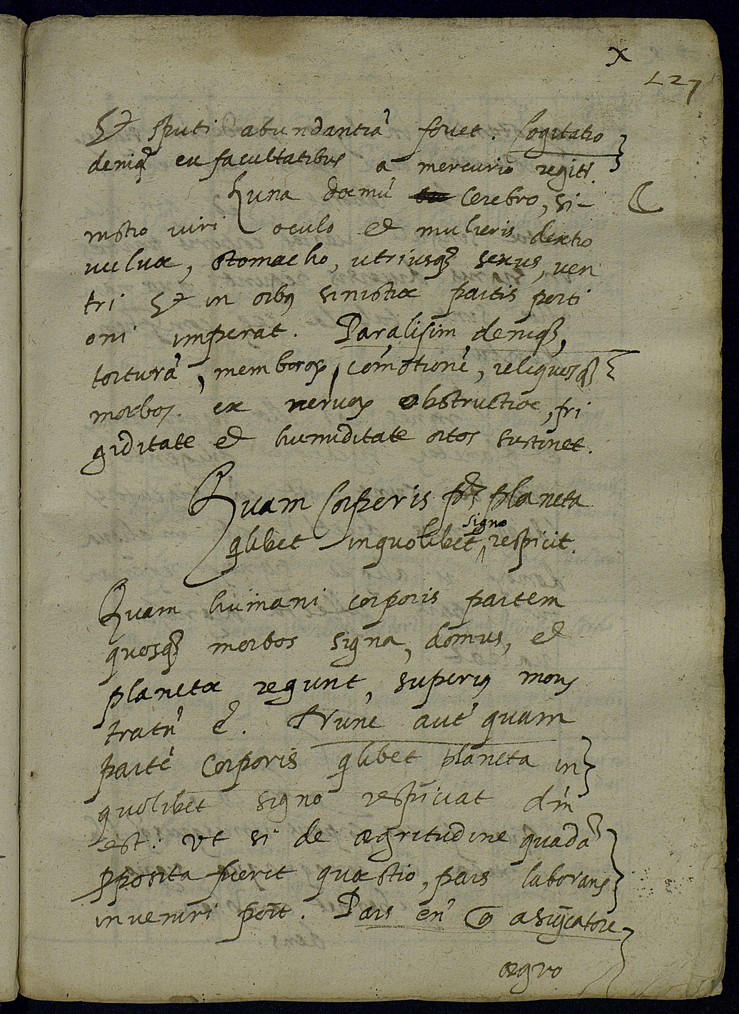 x
127
Et sputi abundantiā fovet. Cogitatio
deniq; cu facultatibus a mercurio regit.
Luna domui Cerebro, si-
nistro viri oculo et mulieris dextro
vulvæ, stomacho, utriusq; sexus, ven
tri Et in oibus sinistræ partis porti
oni imperat. Paralisim deniq;,
torturā, membror, comotionē, reliquosq;
morbos ex nervor obstructioe, fri
giditate et humiditate ortos sustinet.
Quam Corporis ptē planeta
qlibet inquolibet signo respicit.
Quam humani corporis partem
quosq; morbos signa, domus, et
planetæ regunt, superius mons
tratū ē. Nunc aut quam
partē Corporis qlibet planeta in
quolibet signo respiciat dm
est. ut si de ægritudine quadā
pposita fuerit quæstio, pars laborans
inveniri poit. Pars en
ægro